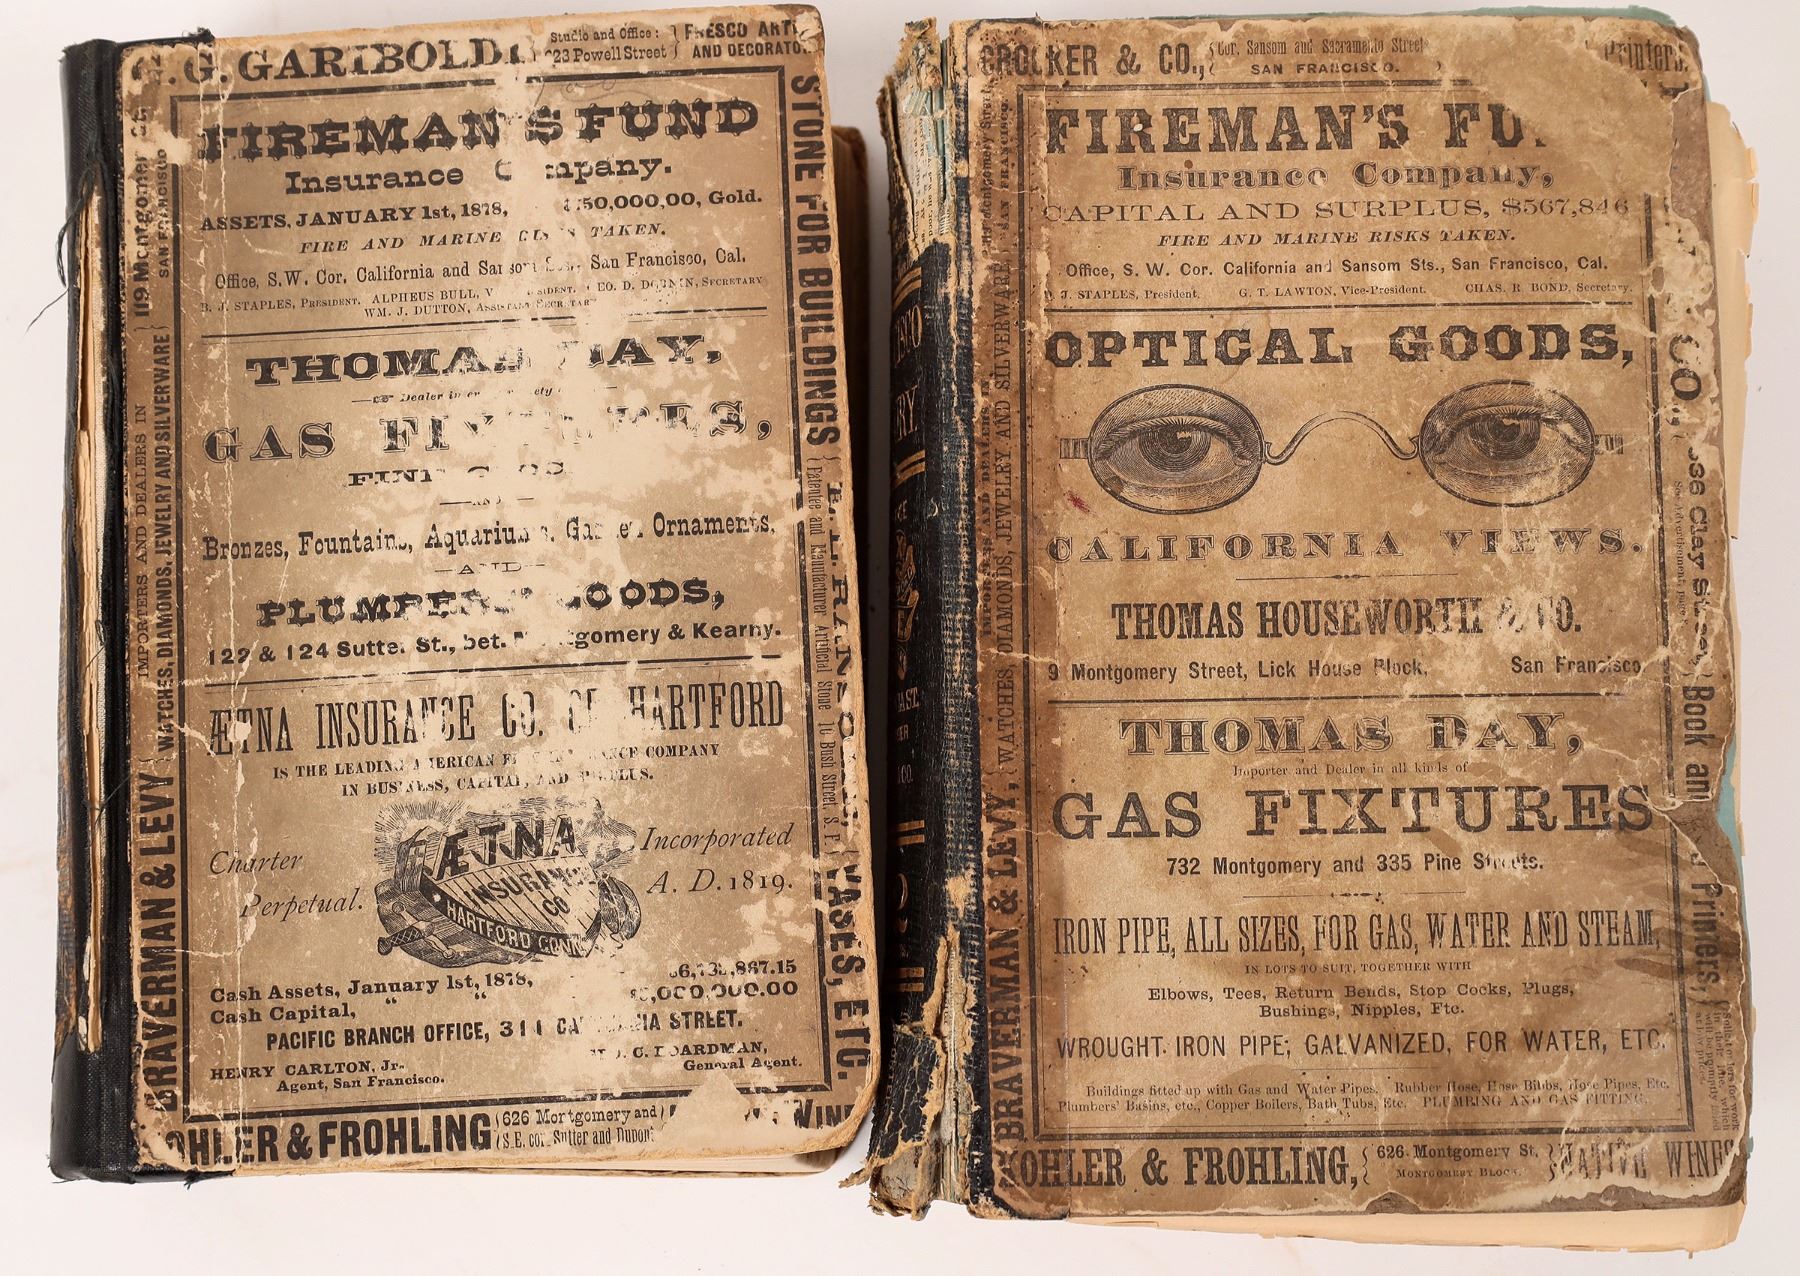 G. GARIBOLDI
Studio and Office:
23 Powell Street
FRESCO
AND DECORATO
STONE FOR BUILDINGS
Patentee and Manufacturer Artificial Stone 10 Bush Street S. F.
VASES, ETC.
119 Montgomer
SAN FRANCISCO
IMPORTERS AND DEALERS IN
WATCHES, DIAMONDS, JEWELRY AND SILVERWARE
BRAVERMAN & LEVY
FIREMAN'S FUND
Insurance mpany.
ASSETS, JANUARY 1st, 1878, 50,000,00, Gold.
FIRE AND MARINE TAKEN.
Office, S. W. Cor. California and Sansom San Francisco, Cal.
J. STAPLES, PRESIDENT. ALPHEUS BULL, V SECRETARY
WM. J. DUTTON,
THOMAS DAY,
Dealer in
GAS FIXTURES,
AND
Bronzes, Fountains, Aquariums, Garden Ornaments,
AND
PLUMBERS' GOODS,
122 & 124 Sutter St., bet. Montgomery & Kearny.
ÆTNA INSURANCE CO. OF HARTFORD
IS THE LEADING AMERICAN FIRE INSURANCE COMPANY
IN BUSINESS, CAPITAL, AND SURPLUS.
Charter
Perpetual.
ÆTNA
INSURANCE
CO
HARTFORD CONN
Incorporated
A. D. 1819.
Cash Assets, January 1st, 1878, 867.15
Cash Capital, “ “ 000,000.00
PACIFIC BRANCH OFFICE, 311 CALIFORNIA STREET.
HENRY CARLTON, Jr.
Agent, San Francisco.
C. BOARDMAN,
General Agent.
OHLER & FROHLING
626 Montgomery and
S.E. cor. Sutter and Dupont
WIN
CROCKER & CO.,
Cor. Sansom and Sacramento Streets
SAN FRANCISCO.
Printers.
SAN FRANCISCO
IMPORTERS AND DEALERS IN
WATCHES, DIAMONDS, JEWELRY AND SILVERWARE,
BRAVERMAN & LEVY,
FIREMAN'S FU
Insurance Company,
CAPITAL AND SURPLUS, $567,846
FIRE AND MARINE RISKS TAKEN.
Office, S. W. Cor. California and Sansom Sts., San Francisco, Cal.
J. STAPLES, President. G. T. LAWTON, Vice-President. CHAS. R. BOND, Secretary.
OPTICAL GOODS,
CALIFORNIA VIEWS.
THOMAS HOUSEWORTH & CO.
9 Montgomery Street, Lick House Block, San Francisco
THOMAS DAY,
Importer and Dealer in all kinds of
GAS FIXTURES
732 Montgomery and 335 Pine Streets.
IRON PIPE, ALL SIZES, FOR GAS, WATER AND STEAM,
IN LOTS TO SUIT, TOGETHER WITH
Elbows, Tees, Return Bends, Stop Cocks, Plugs,
Bushings, Nipples, Etc.
WROUGHT IRON PIPE; GALVANIZED, FOR WATER, ETC.
Buildings fitted up with Gas and Water Pipes, Rubber Hose, Hose Bibbs, Hose Pipes, Etc.
Plumbers' Basins, etc., Copper Boilers, Bath Tubs, Etc. PLUMBING AND GAS FITTING.
CO.,
Clay Street
Book and Printers,
KOHLER & FROHLING,
626 Montgomery St.
MONTGOMERY BLOCK.
NATIVE WINES